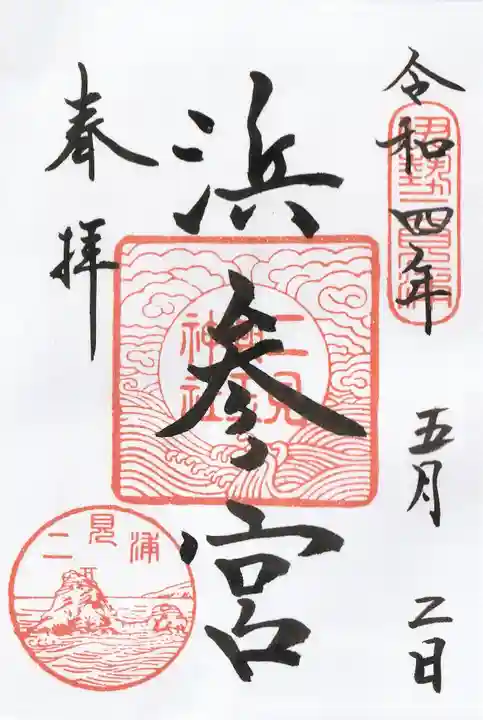 令和四年 五月 二日
伊勢二見浦
浜参宮
二見
興玉
神社
奉拝
二見浦